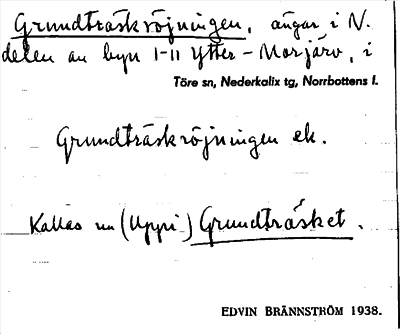 Grundträskröjningen, ängar i N.
delen av byn 1-11 Ytter-Morjärv, i
Töre sn, Nederkalix tg, Norrbottens l.
Grundträskröjningen ek.
Kallas nu (Uppi-) Grundträsket.
EDVIN BRÄNNSTRÖM 1938.